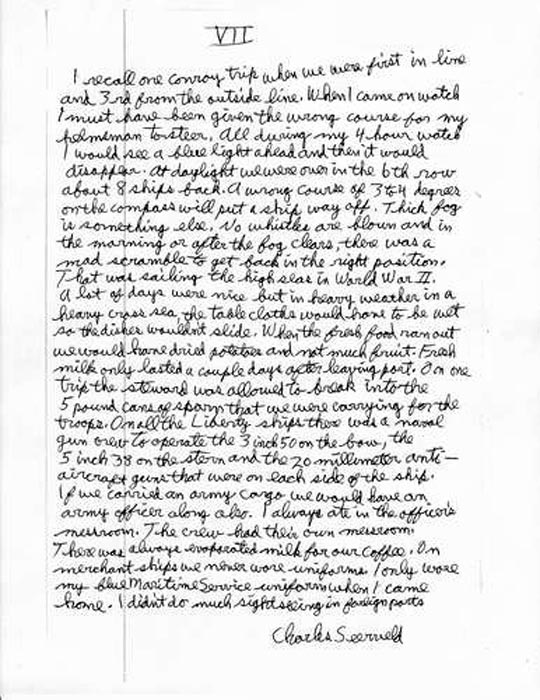 VII
I recall one convoy trip when we were first in line
and 3rd from the outside line. When I came on watch
I must have been given the wrong course for my
helmsman to steer. All during my 4 hour watch
I would see a blue light ahead and then it would
disappear. At daylight we were over in the 6th row
about 8 ships back. A wrong course of 3 to 4 degrees
on the compass will put a ship way off. Thick fog
is something else. No whistles are blown and in
the morning or after the fog clears, there was a
mad scramble to get back in the right position.
That was sailing the high seas in World War II.
A lot of days were nice but in heavy weather in a
heavy cross sea, the table cloths would have to be wet
so the dishes wouldn't slide. When the fresh food ran out
we would have dried potatoes and not much fruit. Fresh
milk only lasted a couple days after leaving port. On one
trip the steward was allowed to break into the
5 pound cans of spam that we were carrying for the
troops. On all the Liberty ships there was a naval
gun crew to operate the 3 inch 50 on the bow, the
5 inch 38 on the stern and the 20 millimeter anti-
aircraft guns that were on each side of the ship.
If we carried an army cargo we would have an
army officer along also. I always ate in the officer's
messroom. The crew had their own messroom.
There was always evaporated milk for our coffee. On
merchant ships we never wore uniforms. I only wore
my blue Maritime Service uniform when I came
home. I didn't do much sightseeing in foreign ports
Charles Seerveld